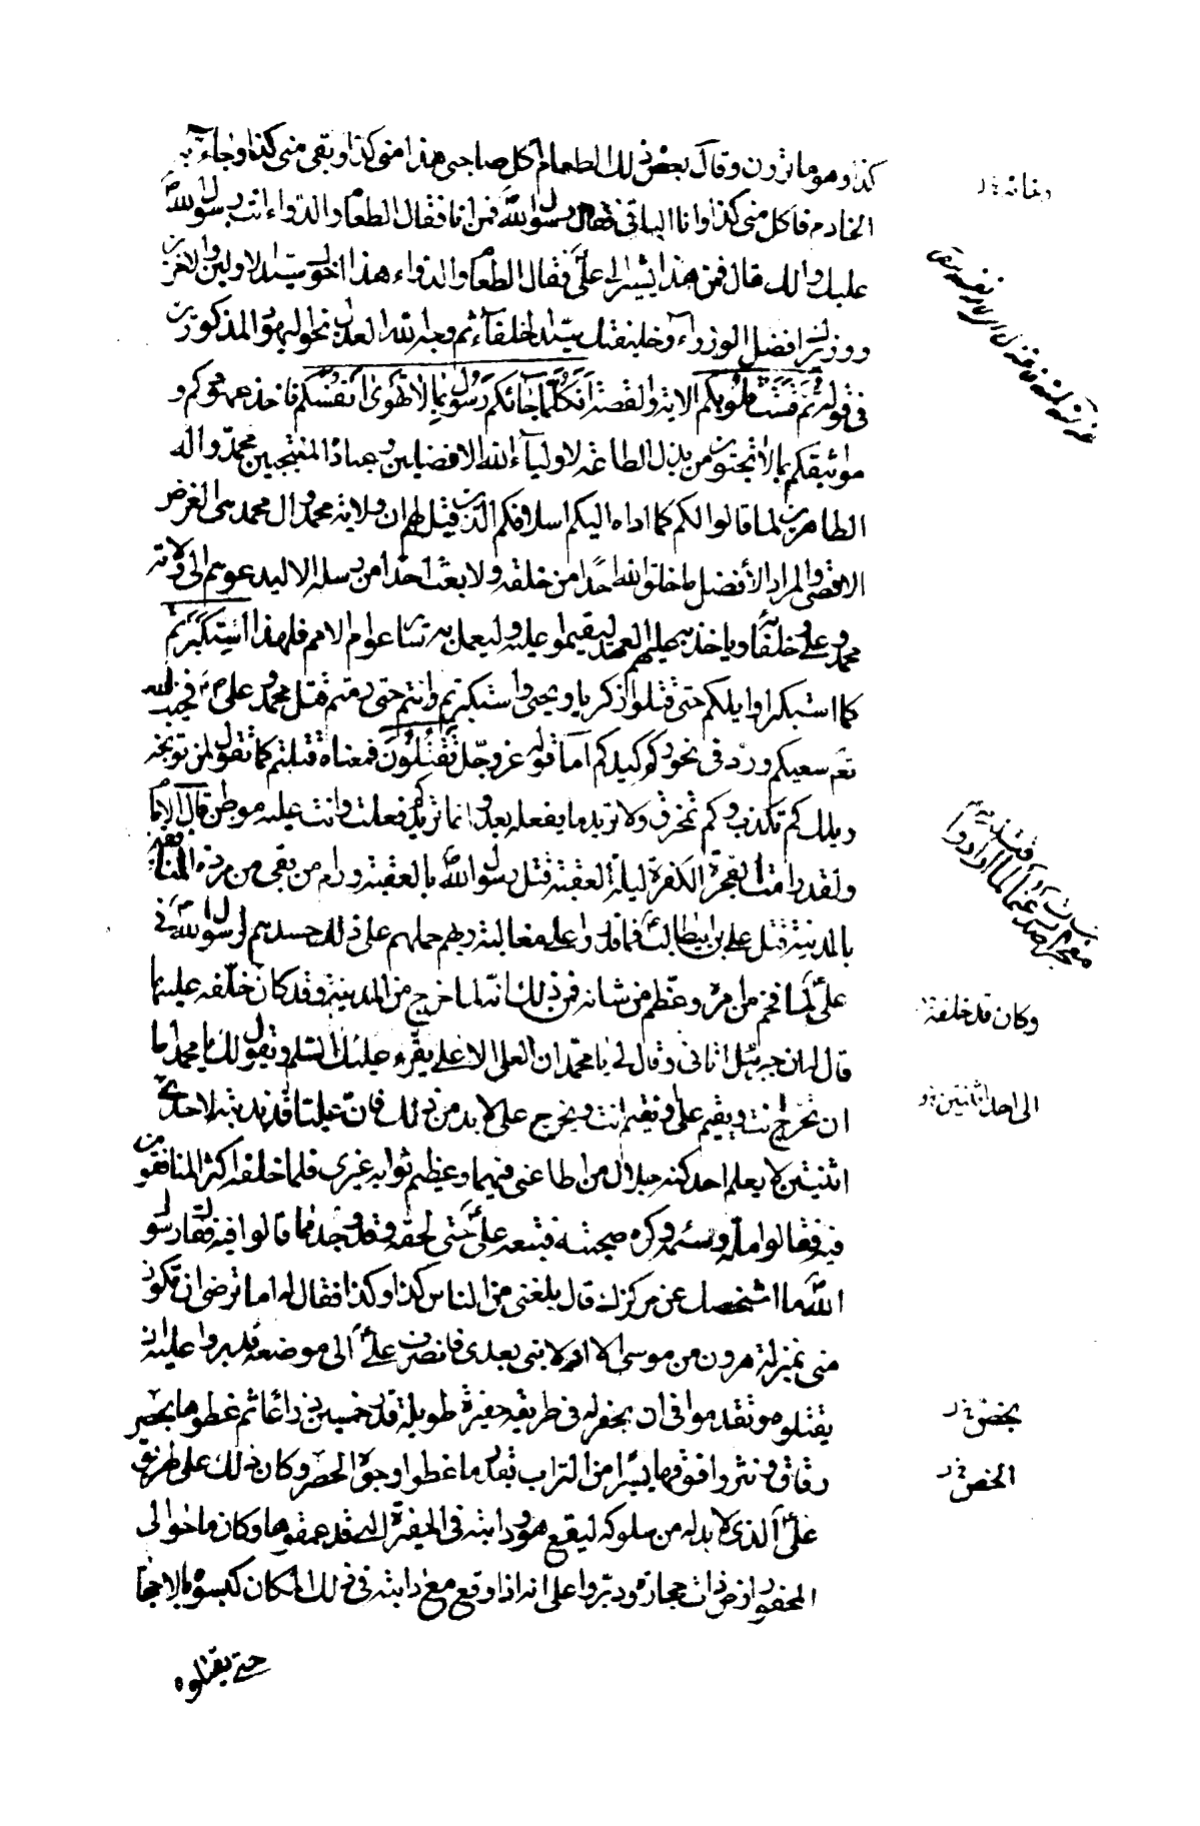 كذا وهو ما ترون وقال بعض ذلك الطعام اكل صاحبي هذا مني كذا وبقي مني كذا وجاء به
الخادم فاكل مني كذا وانا الباقي فقال رسول الله فمن انا فقال الطعام والدواء انت رسول الله
عليك والك قال فمن هذا يشير الى علي فقال الطعام والدواء هذا اخوك سيد الاولين والاخرين
ووزيرك افضل الوزراء وخليفتك سيد الخلفاء ثم وجه الله العذل نحو اليهود المذكورين
في قوله ثم قست قلوبكم الاية والقصة افكلما جائكم رسول بما لا تهوى انفسكم فاخذ عهودكم و
مواثيقكم بما لا تحبون من بذل الطاعة لاولياء الله الافضلين وعباده المنتجبين محمد واله
الطاهرين لما قالوا لكم كما اداه اليكم اسلافكم الذين قيل لهم ان ولاية محمد وال محمد هي الغرض
الاقصى والمراد الأفضل ما خلق الله احدا من خلقه ولا بعث احدا من رسله الا ليدعوهم الى ولاية
محمد وعلي وخلفائه وياخذ به عليهم العهد ليقيموا عليه وليعمل به سائر عوام الامم فلهذا استكبرتم
كما استكبر اوايلكم حتى قتلوا زكريا ويحيى واستكبرتم وانتم حتى رمتم قتل محمد وعلي فخيب الله
تع سعيكم ورد في نحوركم كيدكم اما قوله عز وجل تقتلون فمعناه قتلتم كما تقول لمن توبخه
ويلك كم تكذب وكم تمخرق ولا تريد ما يفعله بعد وانما تريد كم فعلت وانت عليه موطن قال الامام
ولقد رامت الفجرة الكفرة ليلة العقبة قتل رسول الله بالعقبة ورام من بقي من مردة المنافقين
بالمدينة قتل علي بن ابيطالب فما قدروا على مغالبة ربهم حملهم على ذلك حسدهم لرسول الله في
علي لما فخم من امره وعظم من شانه فمن ذلك انه لما خرج من المدينة وقد كان خلفه عليها
قال له ان جبرئيل اتاني وقال لي يا محمد ان العلي الاعلى يقرء عليك السلم ويقول لك يا محمد اما
ان تخرج انت ويقيم علي وتقيم انت ويخرج علي لا بد من ذلك فان عليا قد ندبته لاحدى
اثنتين لا يعلم احد كنه جلال من اطاعني فيهما وعظيم ثوابه غيري فلما خلفه اكثر المنافقون
فيه فقالوا مله وسئمه وكره صحبته فتبعه علي حتى لحقه وقد وجد مما قالوا فيه فقال رسول
الله ما اشخصك عن مركزك قال بلغني عن الناس كذا وكذا فقال له اما ترضى ان تكون
مني بمنزلة هرون من موسى الا انه لا نبي بعدي فانصرف علي الى موضعه فدبروا عليه ان
يقتلوه وتقدموا في ان يحفر له في طريقه حفيرة طويلة قدر خمسين ذراعا ثم غطوها بحصر
رقاق ونثروا فوقها يسيرا من التراب بقدر ما غطوا وجوه الحصر وكان ذلك على طريق
علي الذي لا بد له من سلوكه ليقع هو ودابته في الحفيرة التي قد عمقوها وكان ما حوالي
المحفور ارض ذات حجارة ودبروا على انه اذا وقع مع دابته في ذلك المكان كبسوه بالاحجار
حتى يقتلوه
وكان قد خلفه
الى احد اثنتين
بخص
الخص